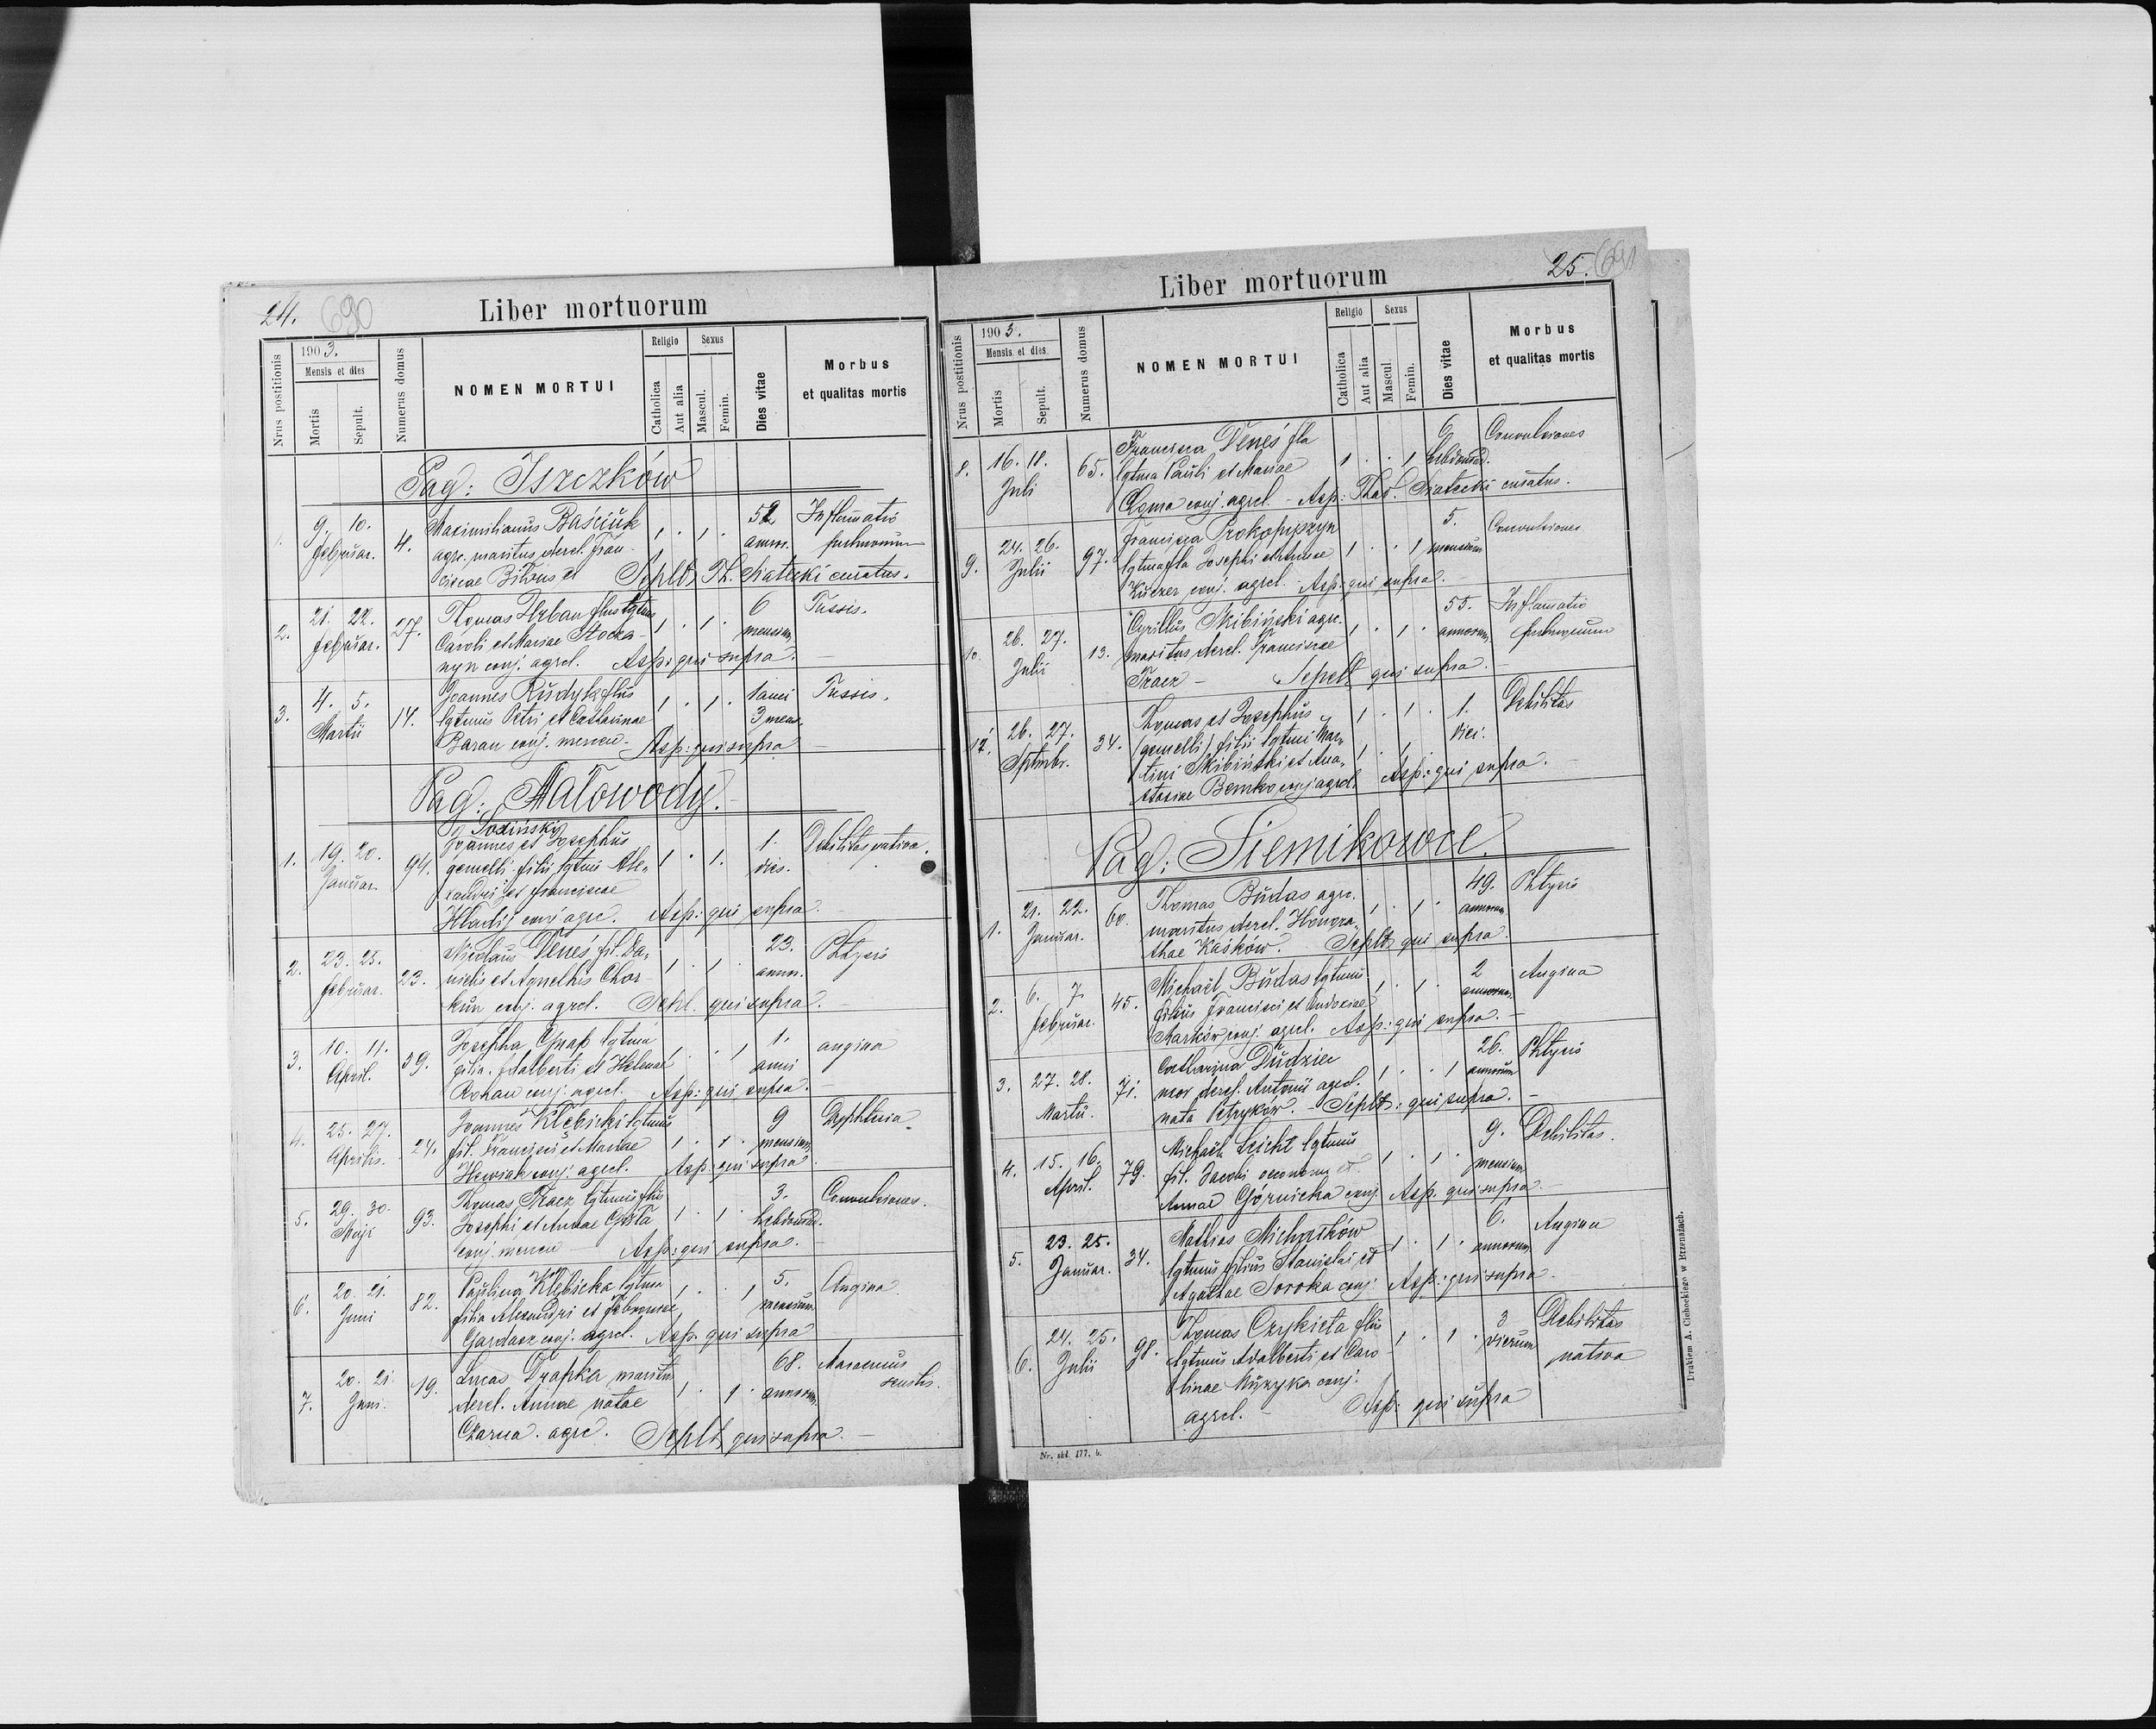 24. 690
Liber mortuorum
Nrus postitionis
1903.
Mensis et dies
Mortis
Sepult.
Numerus domus
NOMEN MORTUI
Religio
Catholica
Aut alia
Sexus
Mascul.
Femin.
Dies vitae
Morbus
et qualitas mortis
Pag: Iszczków
9. 10. 4. Maximilianus Baściuk 1 . 1 . 52 Inflamatio
Februar. agr. maritus derel. Fran- annr.
ciscae Seplt. Th. Siatecki curatus.
2. 21. 22. 27. Thomas Urban flius lgtmus 1 . 1 . 6 Tussis.
Februar. Caroli et Mariae Stocka- mensium
nyn conj. agrcl. Asp: qui supra.
3. 4. 5. 14. Joannes Rudyk flius 1 . 1 . 1 anni Tussis.
Martii lgtmus Petri et Catharinae 3 mens.
Baran conj. Asp: qui supra
Pag: Małowody.
1. 19. 20. 94. Joannes et Josephus 1 . 1. 1. Debilitas nativa.
Januar. gemelli filii lgtmi Ale- diei.
xandri et Franciscae
Hładij conj. agrc. Asp: qui supra.
2. 23. 25. 23. Nicolaus Deneś fil. Da- 1 . 1 . 23. Phtysis
Februar. nielis et Agnethis Chor- annor.
kun conj. agrcl. Sepl. qui supra.
3. 10. 11. 59. Josepha Gnap lgtma 1 . . 1 1. angina
April. filia Adalberti et Helenae anni
Rohan conj. agrcl. Asp: qui supra.
4. 25. 27. 24. Joannes Klębicki lgtmus 1 . 1 . 9
Aprilis. fil. Francisci et Mariae mensium
conj. agrcl. Asp: qui supra
5. 29. 30. 93. Thomas Tkacz lgtmus flius 1 . 1 . 3. Convulsiones.
Maji Josephi et Annae Gista hebdomad.
conj. Asp: qui supra.
6. 20. 21. 82. Paulina Klębicka lgtma 1 . . 1 5. Angina
Juni filia Alexandri et Febroniae mensium
Gardasz conj. agrcl. Asp. qui supra
7. 20. 21. 19. Lucas Drapka maritus 1 . 1 . 68. Marasmus
Juni. derel. Annae natae annorum senilis.
Czarna. agrc. Seplt. qui supra.
25. 691
Liber mortuorum
Nrus postitionis
1903.
Mensis et dies
Mortis
Sepult.
Numerus domus
NOMEN MORTUI
Religio
Catholica
Aut alia
Sexus
Mascul.
Femin.
Dies vitae
Morbus
et qualitas mortis
8. 16. 18. 65. Francisca Deneś fla 1 . . 1 6 Convulsiones
Juli lgtma Pauli et Mariae hebdomad.
conj. agrcl. - Asp: Thad. Siatecki curatus.
9. 24. 26. 97. Francisca Prokopyszyn 1 . . 1 5. Convulsiones
Julii lgtma fla Josephi et Annae mensium
conj. agrcl. Asp: qui supra.
10. 26. 27. 13. Cyrillus Skibiński agrc. 1 . 1 . 55. Inflamatio
Julii maritus derel. Franciscae annorum
Tkacz - Sepelt. qui supra.
12. 26. 27. 34. Thomas et Josephus 1 . 1 . 1. Debilitas
Sptmbr. (gemelli) filii lgtmi Mar- 1 . 1 . diei.
tini Skibiński et Ana-
stasiae Bemko conj agrcl. Asp: qui supra.
Pag: Siemikowce.
1. 21. 22. 60. Thomas Budas agrc. 1 . 1 . 49. Phtysis
Januar. maritus derel. Honora- annorum
thae Kaśków. Seplt. qui supra
2. 6. 7. 45. Michaël Budas lgtmus 1 . 1 . 2 Angina
Februar. filius Francisci et Eudociae annorum
Marków conj. agrcl. Asp: qui supra.
3. 27. 28. 71. Catharina Dudziec 1 . . 1 26. Phtysis
Martii. uxor derel. Antonii agrcl. annorum
nata Petryków. - Seplt: qui supra.
4. 15. 16. 79. Michaël Leicht lgtmus 1 . 1 . 9. Debilitas.
April. fil. Jacobi oeconomi et mensium
Annae Górnicka conj. Asp. qui supra
5. 23. 25. 34. Mathias Michałków 1 . 1 . 6. Angina
Januar. lgtmus filius Stanislai et annorum
Agathae Soroka conj: Asp: qui supra
6. 24. 25. 98. Thomas Czykieta flius 1 . 1 . 3 Debilitas
Julii lgtmus Adalberti et Caro- dierum nativa
linae Muzyka conj:
agrcl. - Asp: qui supra
Nr. skł. 177. b.
Drukiem A. Cichockiego w Brzeżanach.